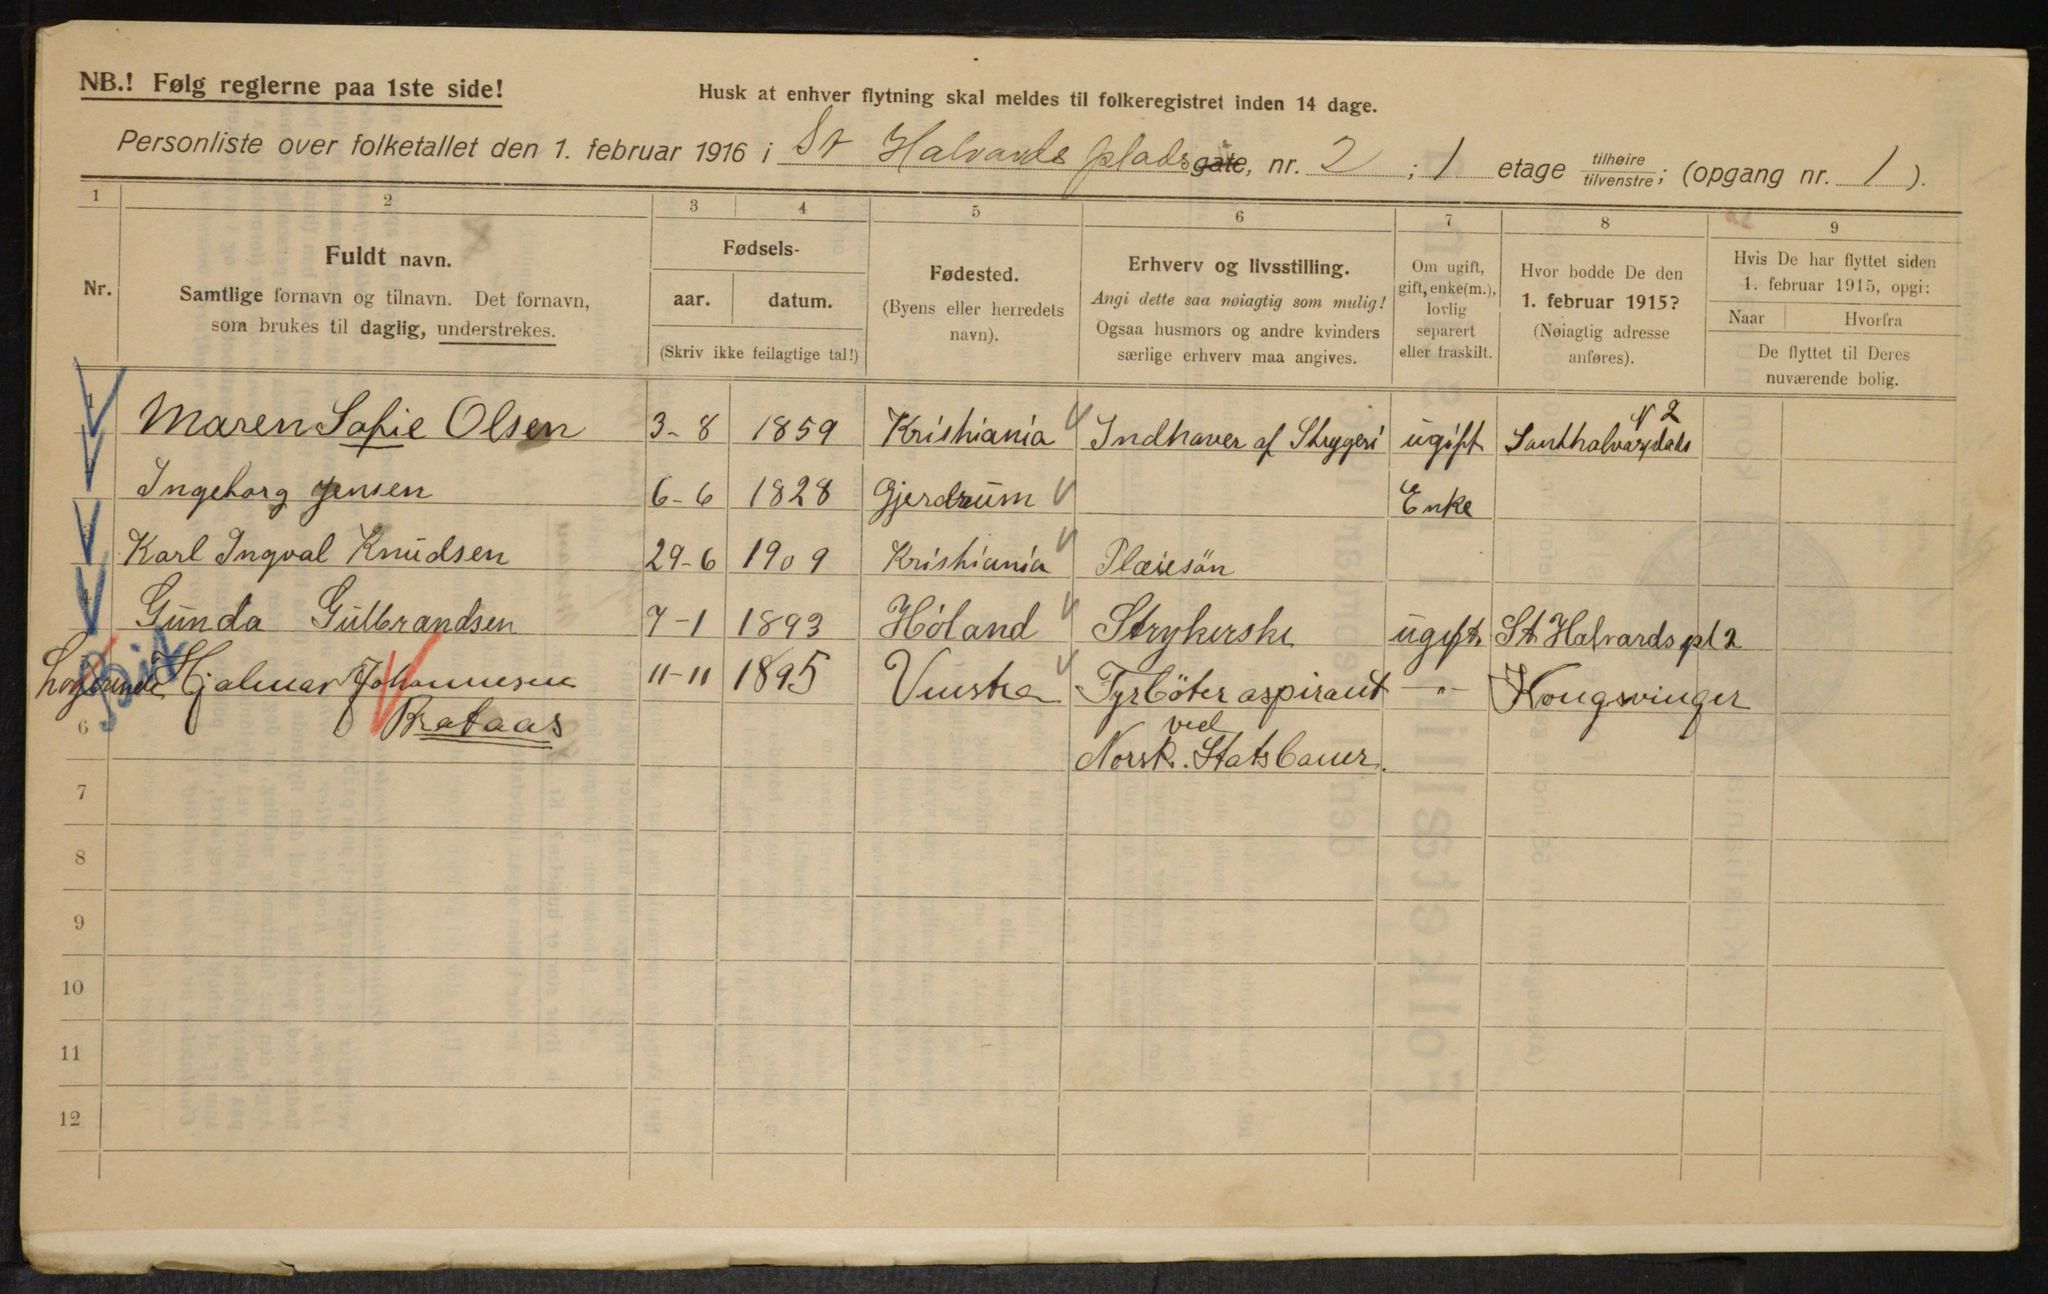 NB.! Følg reglerne paa 1ste side!
Husk at enhver flytning skal meldes til folkeregistret inden 14 dage.
Personliste over folketallet den 1. februar 1916 i St Halvards plads gate, nr. 2 ; 1 etage tilhøire/tilvenstre; (opgang nr. 1 ).
1 2 3 4 5 6 7 8 9
Nr.
Fuldt navn.
Samtlige fornavn og tilnavn. Det fornavn,
som brukes til daglig, understrekes.
Fødsels-
aar. datum.
(Skriv ikke feilagtige tal!)
Fødested.
(Byens eller herredets
navn).
Erhverv og livsstilling.
Angi dette saa nøiagtig som mulig!
Ogsaa husmors og andre kvinders
særlige erhverv maa angives.
Om ugift,
gift, enke(m.),
lovlig
separert
eller fraskilt.
Hvor bodde De den
1. februar 1915?
(Nøiagtig adresse
anføres).
Hvis De har flyttet siden
1. februar 1915, opgi:
Naar Hvorfra
De flyttet til Deres
nuværende bolig.
Maren Sofie Olsen 3-8 1859 Kristiania Indhaver af Strygeri ugift Santhalvarsplads N 2
Ingeborg Jensen 6-6 1828 Gjerdrum Enke
Karl Ingval Knudsen 29-6 1909 Kristiania Pleiesön
Gunda Gulbrandsen 7-1 1893 Höland Strykerske ugift St Halvards pl 2
Logerende Hjalmar Johannesen 11-11 1895 Vinstra Fyrböter aspirant -"- Kongsvinger
6 Brataas ved
Norsk. Statsbaner.
7
8
9
10
11
12